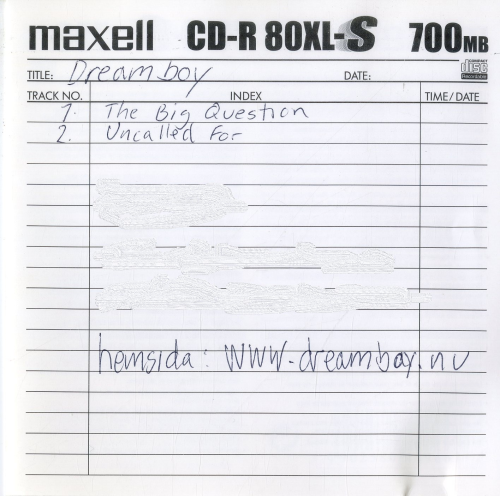 maxell CD-R 80XL-S 700MB
COMPACT disc Recordable
TITLE: Dreamboy DATE:
TRACK NO. INDEX TIME/DATE
1. The Big Question
2. Uncalled For
hemsida: www.dreamboy.nu